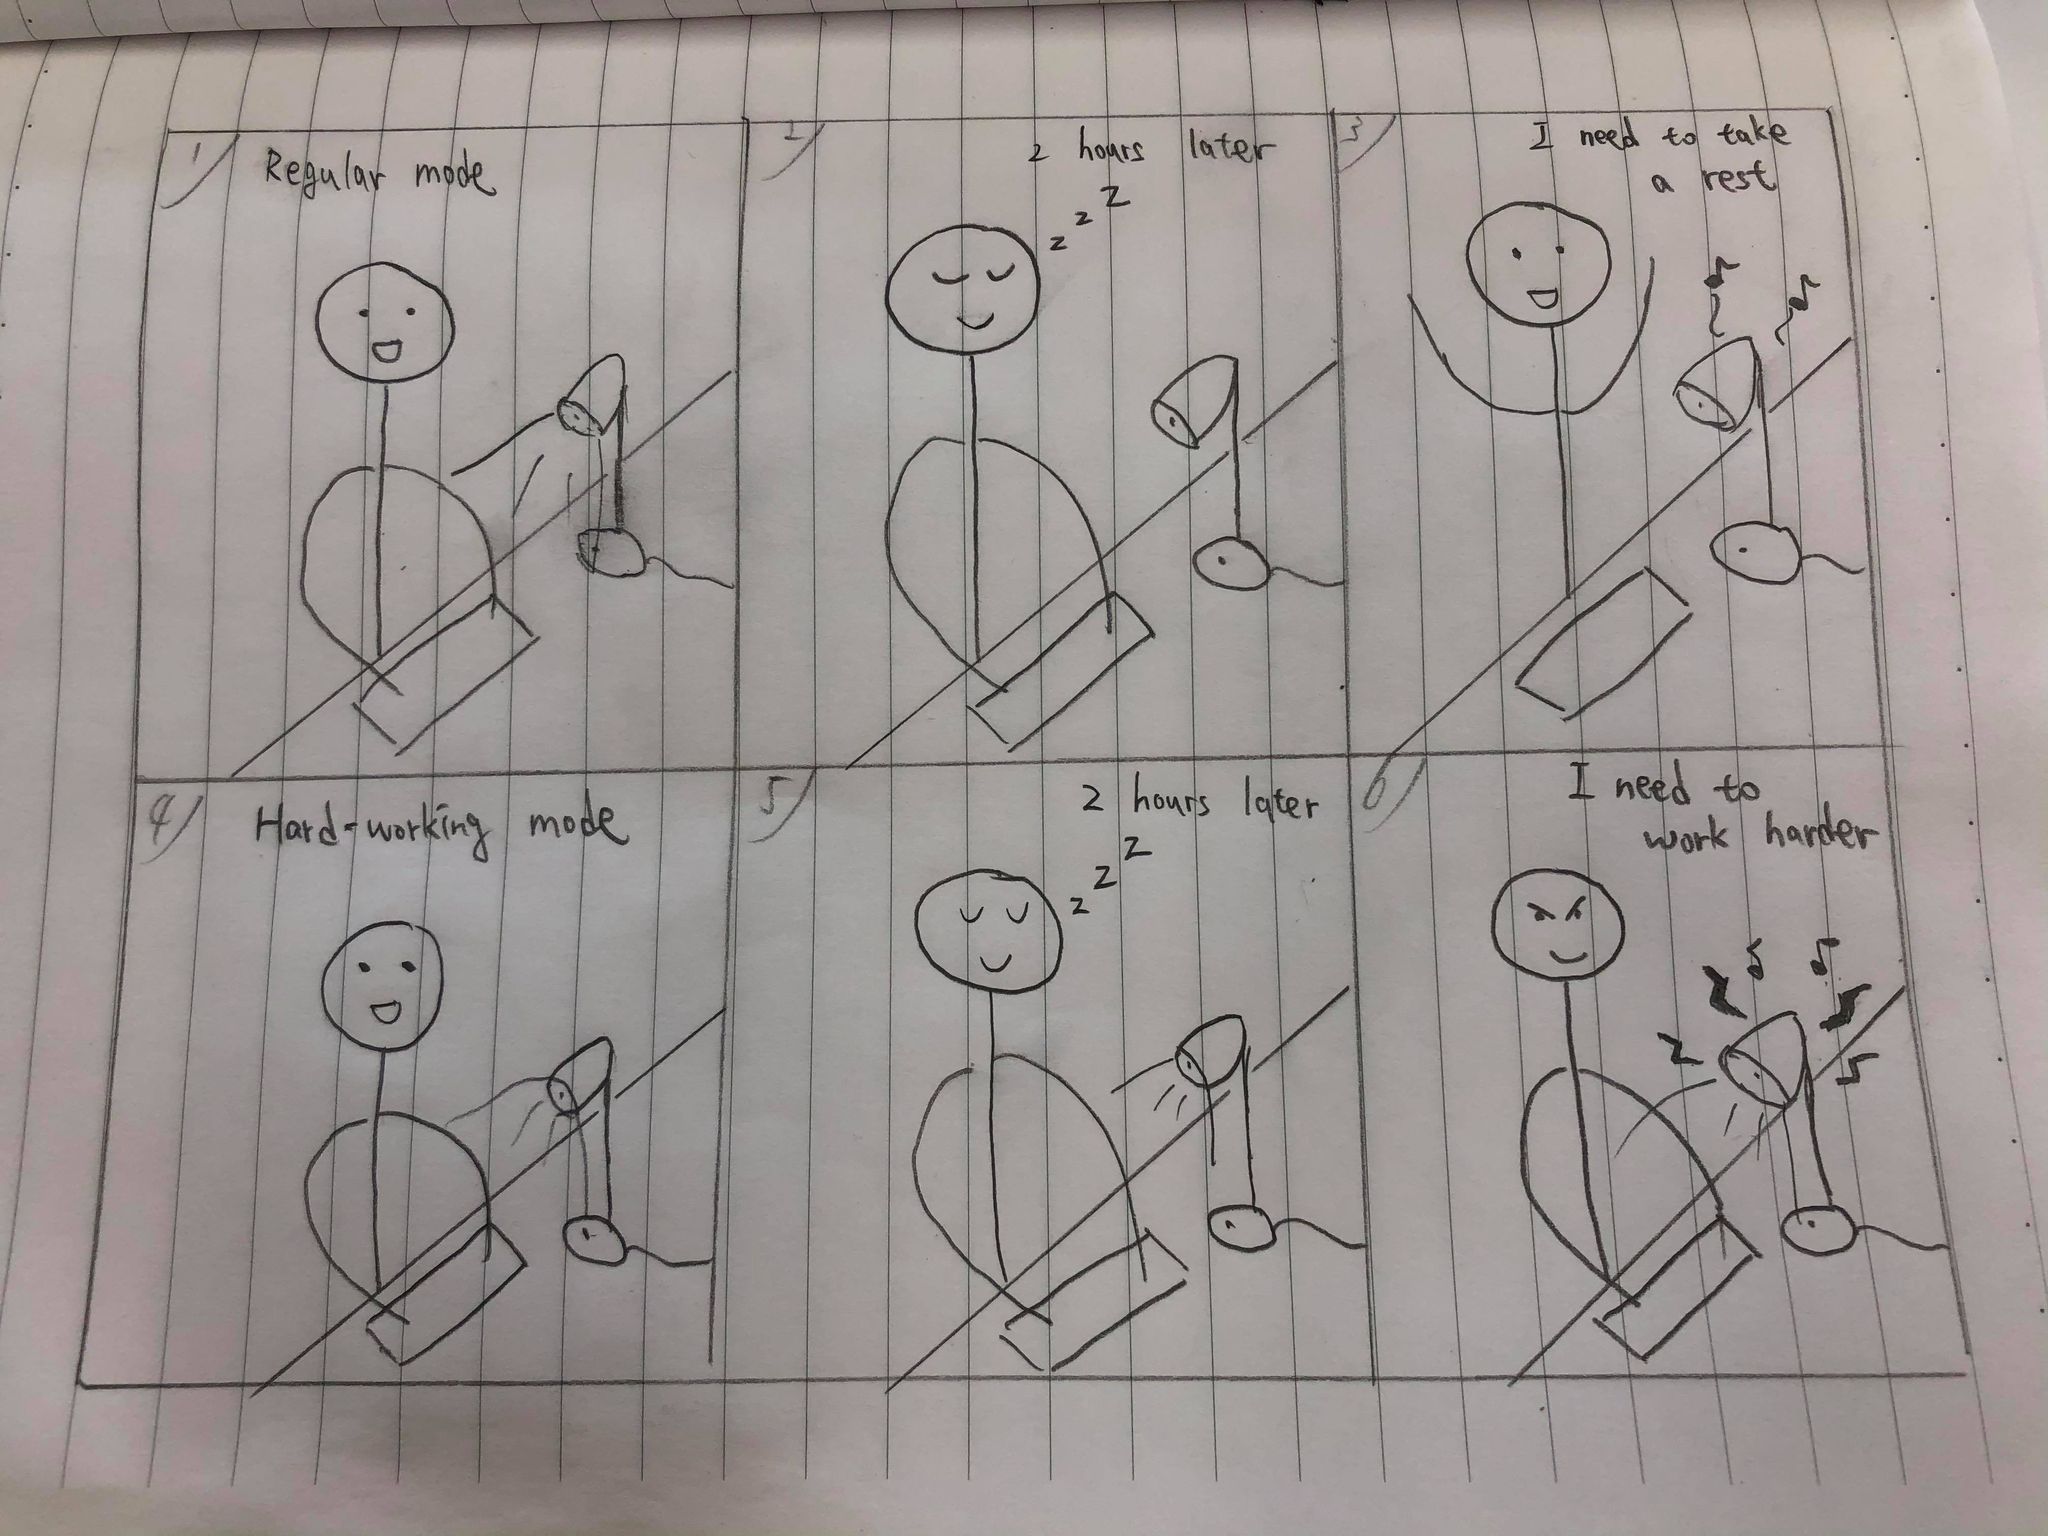 1
Regular mode
2
2 hours later
z z Z
3
I need to take
a rest
4
Hard-working mode
5
2 hours later
z z z
6
I need to
work harder